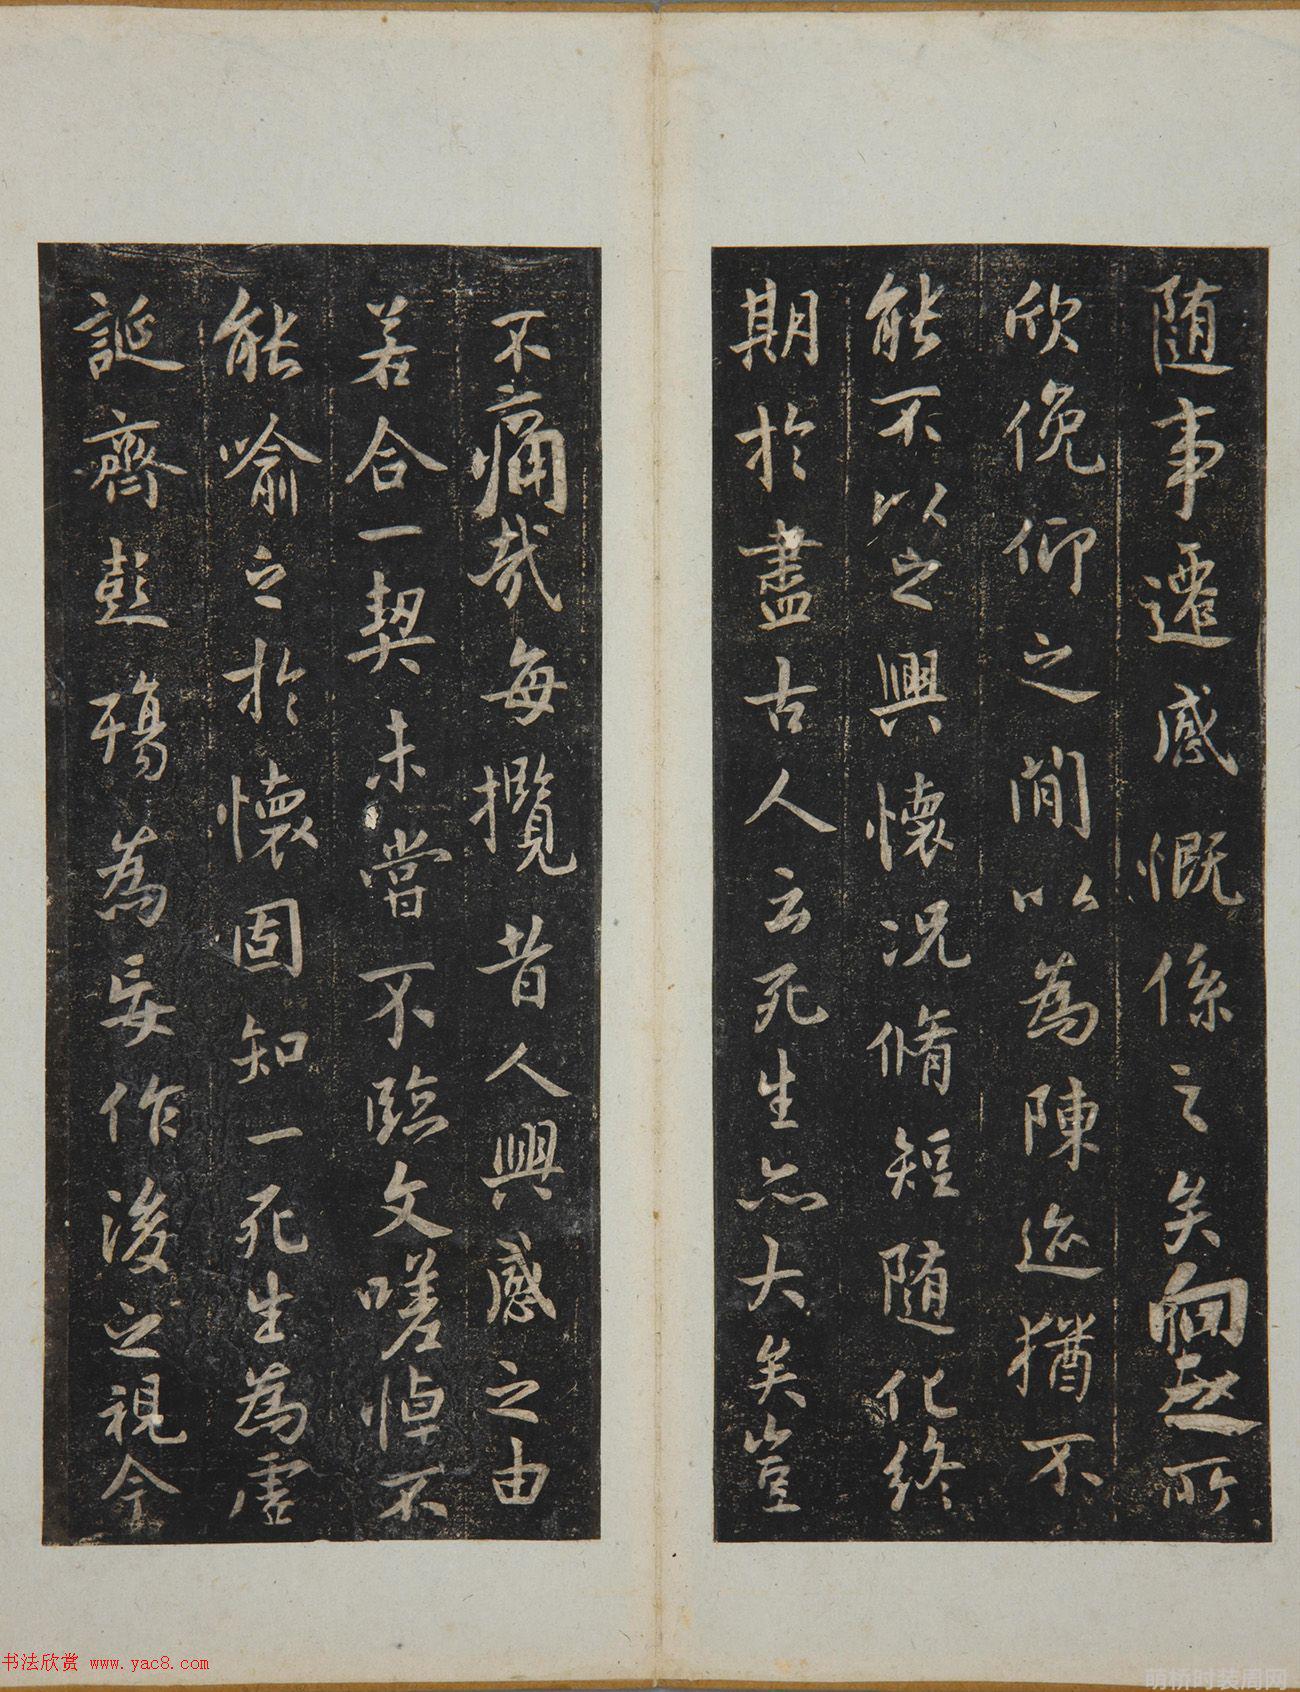 随事遷感慨係之矣向之所
欣俛仰之閒以為陳迹猶不
能不以之興懷况脩短随化終
期於盡古人云死生亦大矣豈
不痛哉每攬昔人興感之由
若合一契未嘗不臨文嗟悼不
能喻之於懷固知一死生為虛
誕齊彭殤為妄作後之視今
书法欣赏 www.yac8.com
萌桥时装周网